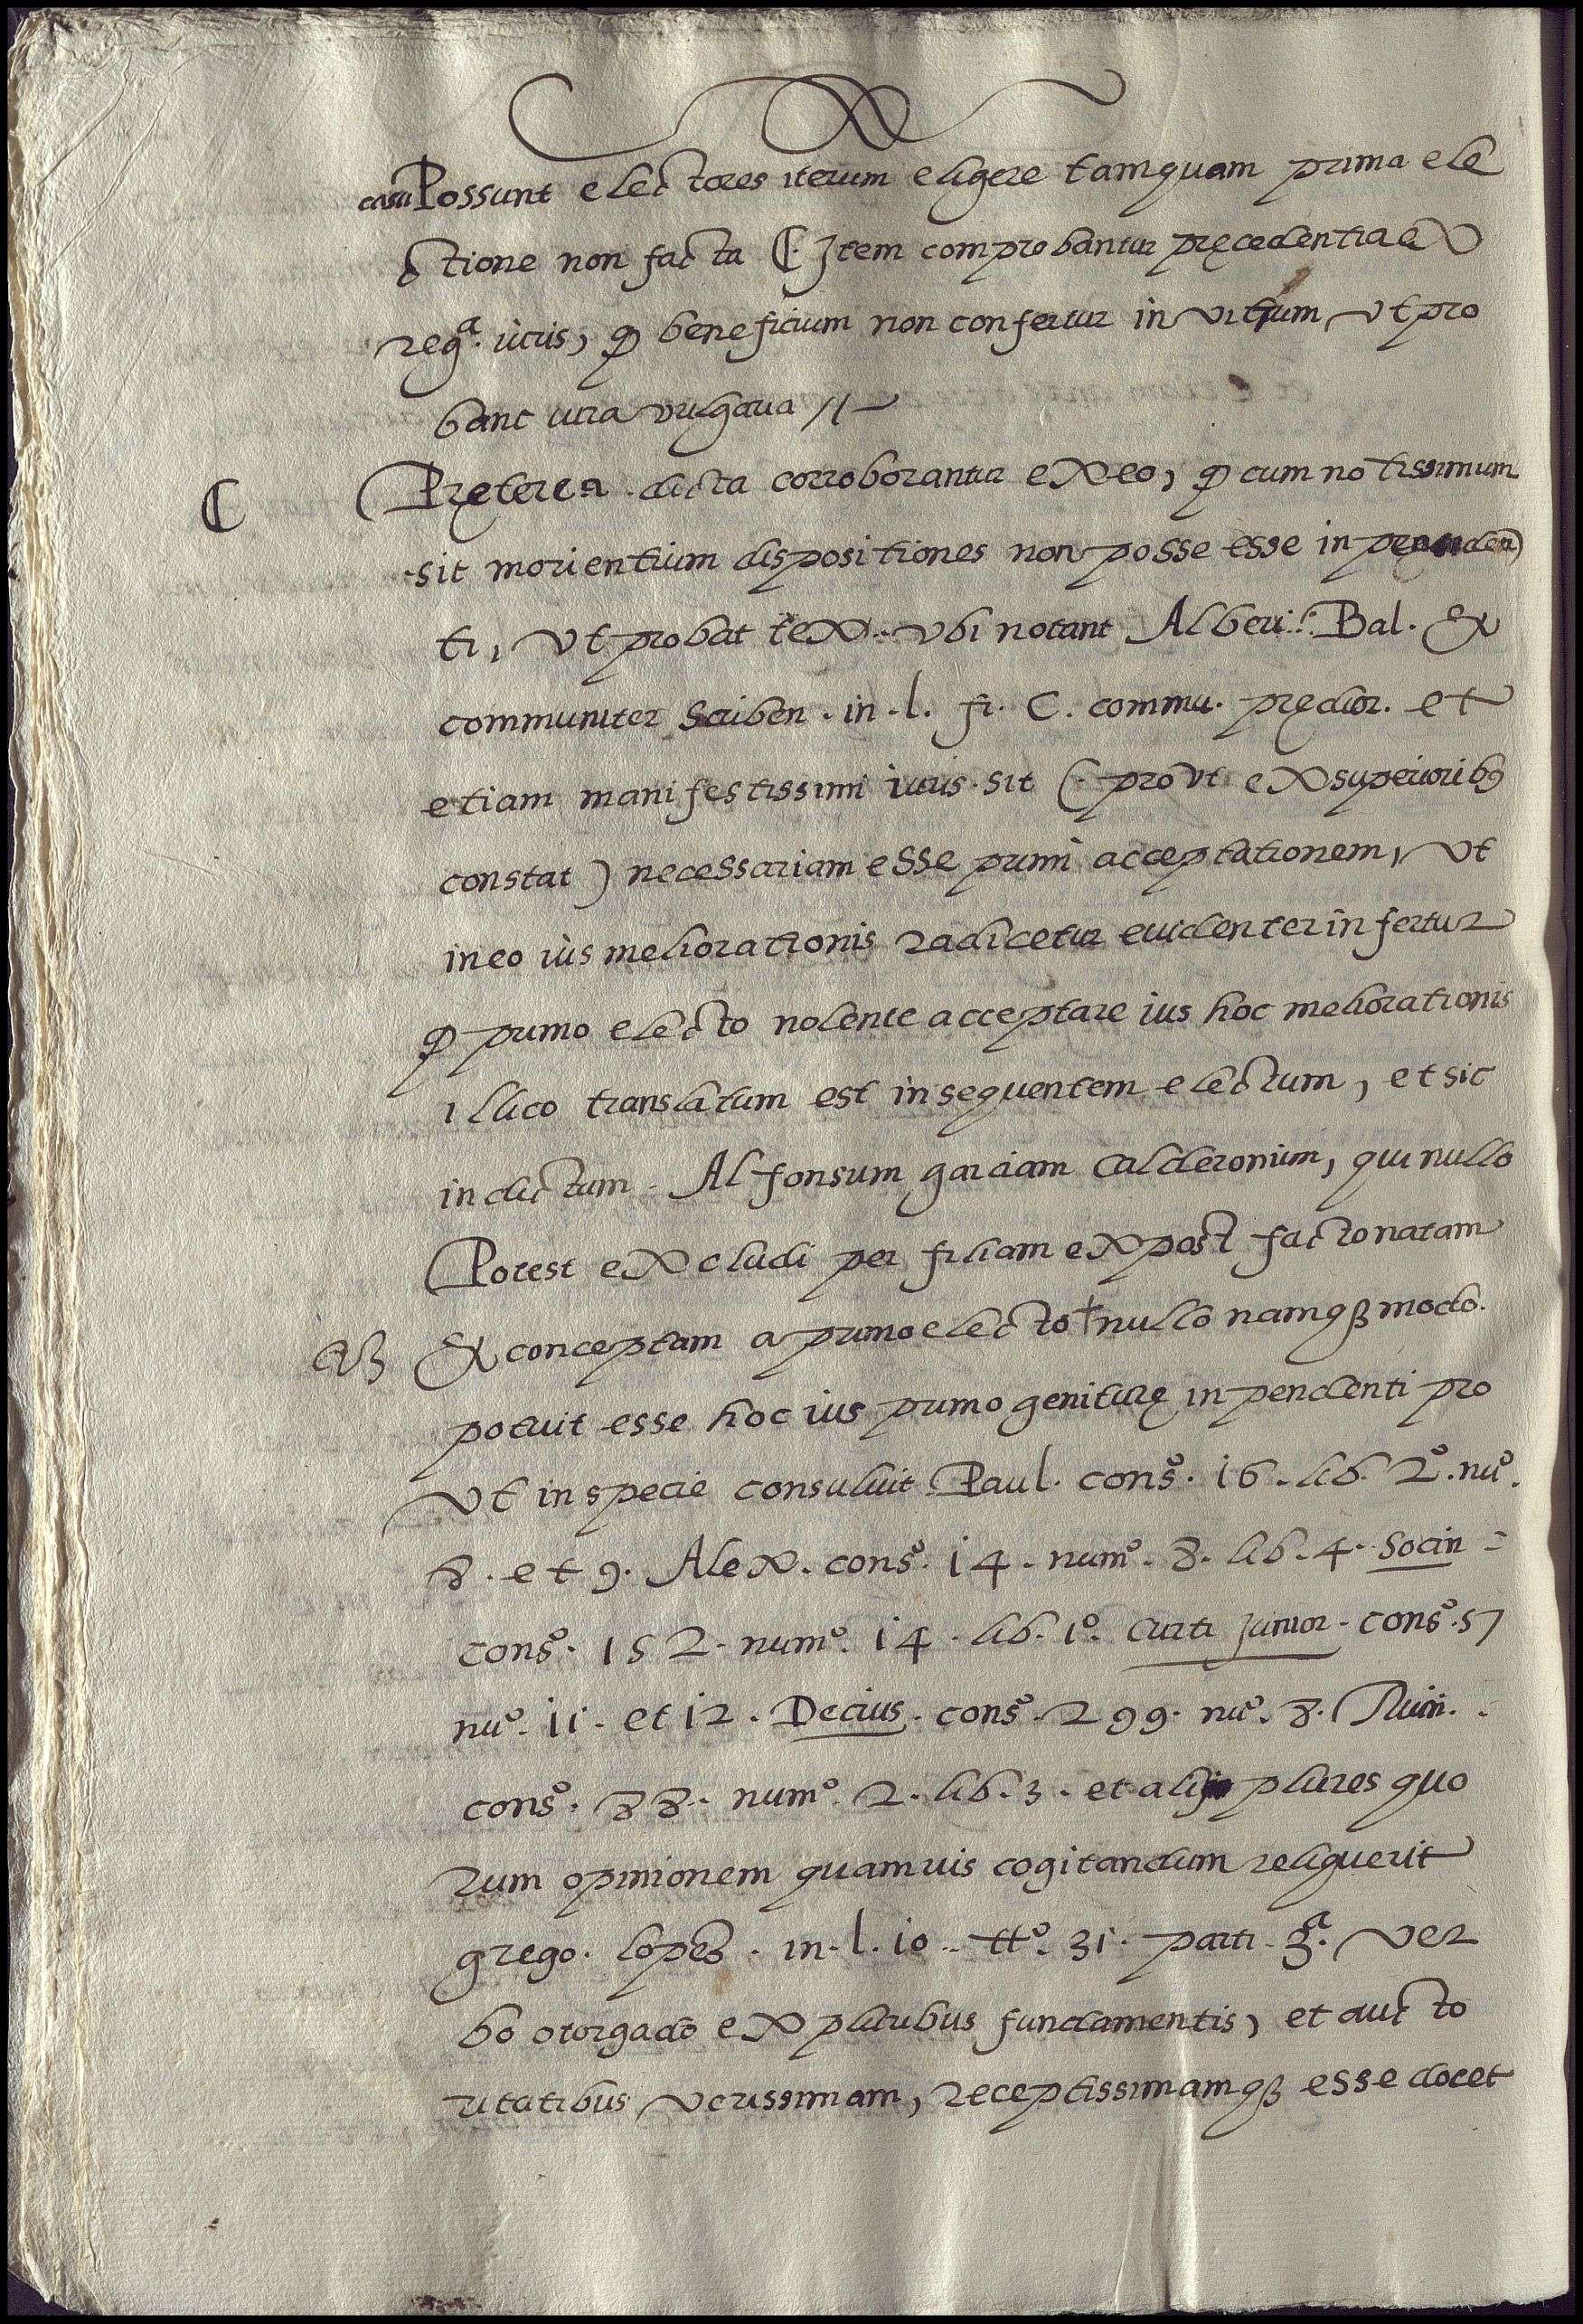 casu Possunt electores iterum eligere tamquam prima ele
ctione non facta ₵. Item comprobantur pręcedentia ex
regª. iuris, ꝙ beneficium non confertur in vitium, vt pro
bant iura vulgaria //
₵ Pręterea dicta corroborantur ex eo, ꝙ cum notissimum
sit morientium dispositiones non posse esse in penden
ti, vt probat tex. vbi notant Alberi. Bal. &
communiter scriben. in. l. fi. C. commu. prędior. et
etiam manifestissimi iuris sit (prout ex superioribꝰ
constat) necessariam esse primi acceptationem, vt
in eo iùs meliorationis radicetur euidenter infertur
ꝙ primo electo nolente acceptare ius hoc meliorationis
illico translatum est in sequentem electum, et sic
in dictum Alfonsum garciam calderonium, qui nullo
Potest excludi per filiam ex post facto natam
& conceptam a primo electo † nullo namqꝫ modo.
potuit esse hoc ius primo geniturę in pendenti pro
vt in specie consuluit Paul. consº. 16. lib. 2º. nuº.
8. et 9. Alex. consº. 14. numº. 8. lib. 4. Socin =
consº. 152. numº. 14. lib. 1º. Curti Junior. consº. 57
nuº. 11. et 12. Decius. consº. 299. nuº. 8. Ruin.
consº. 88. numº. 2. lib. 3. et alij plures quo
rum opinionem quamuis cogitandum reliquerit
grego. lopez. in. l. 10. ttº. 31. parti. 3ª. ver
bo otorgado ex pluribus fundamentis, et aucto
ritatibus verissimam, receptissimamqꝫ esse docet